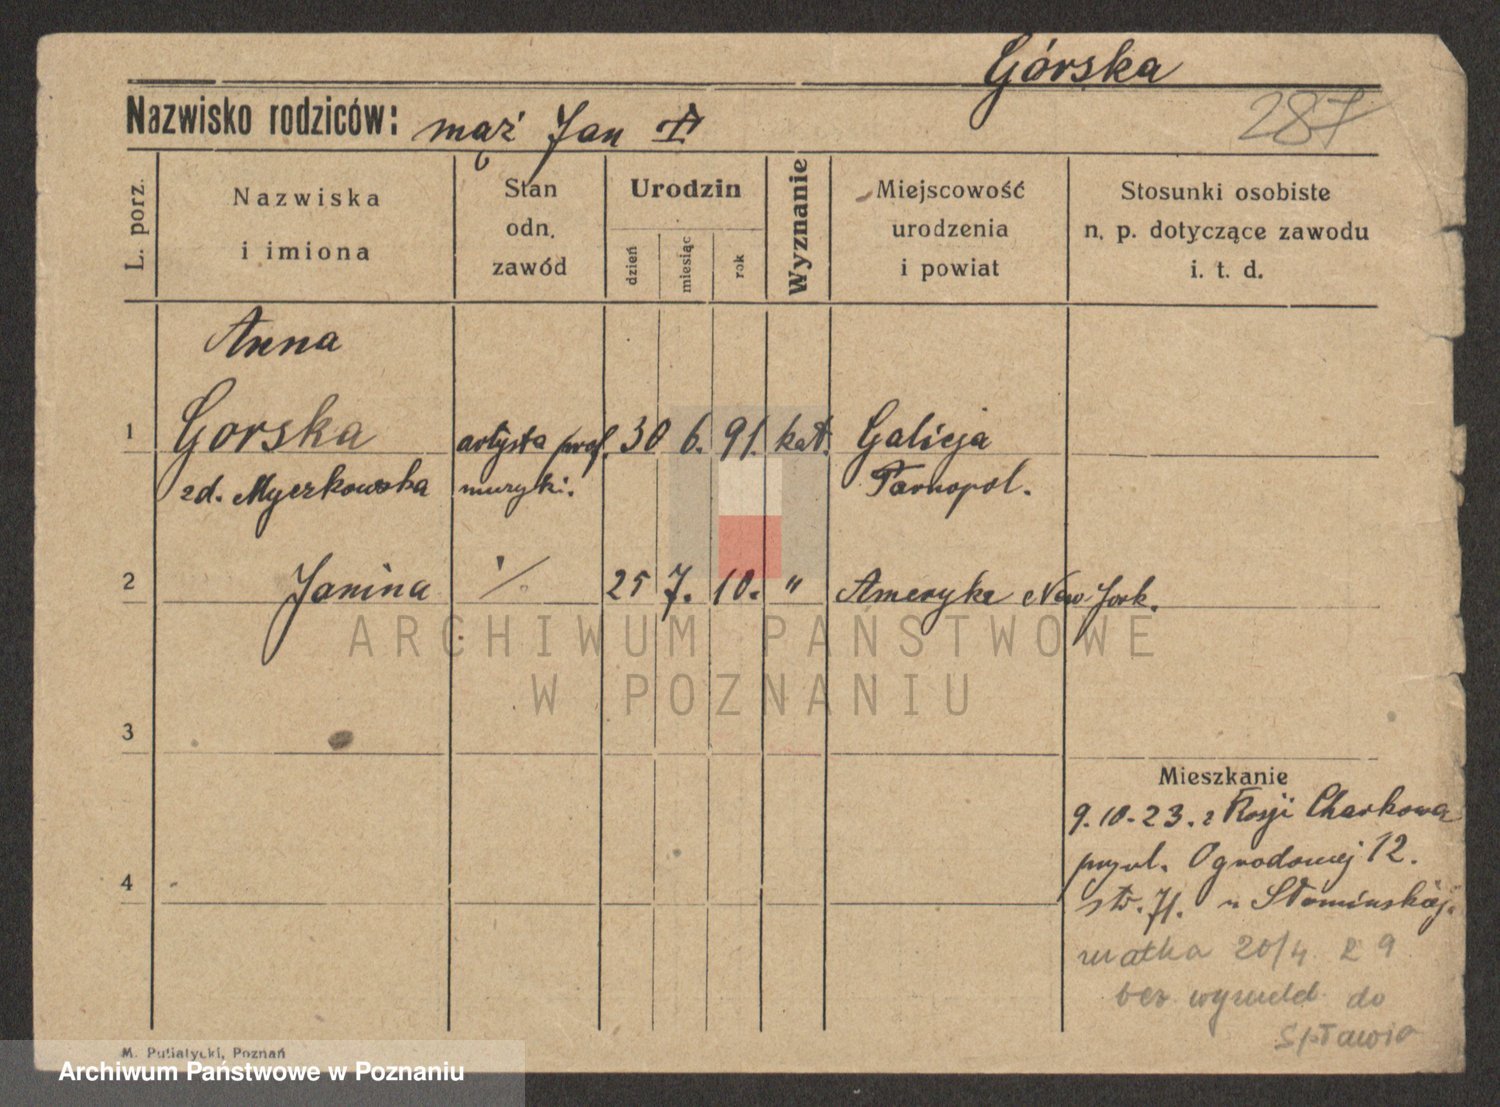 Górska
287
Nazwisko rodziców: mąż Jan
L. porz.
Nazwiska
i imiona
Stan
odn.
zawód
Urodzin
dzień
miesiąc
rok
Wyznanie
Miejscowość
urodzenia
i powiat
Stosunki osobiste
n. p. dotyczące zawodu
i. t. d.
Anna
1 Gorska artysta prof. 30 6. 91. kat. Galicja
zd. Myczkowska muzyki. Tarnopol.
2 Janina % 25 7. 10. " Ameryka New Jork.
ARCHIWUM PAŃSTWOWE
W POZNANIU
3
Mieszkanie
9.10.23. z Rosji Charkowa
Ogrodowej 12.
4
str. 71. u Słomińskiej.
matka 20/4 29
bez wymeld do
Spławia
M. Putiatycki, Poznań
Archiwum Państwowe w Poznaniu